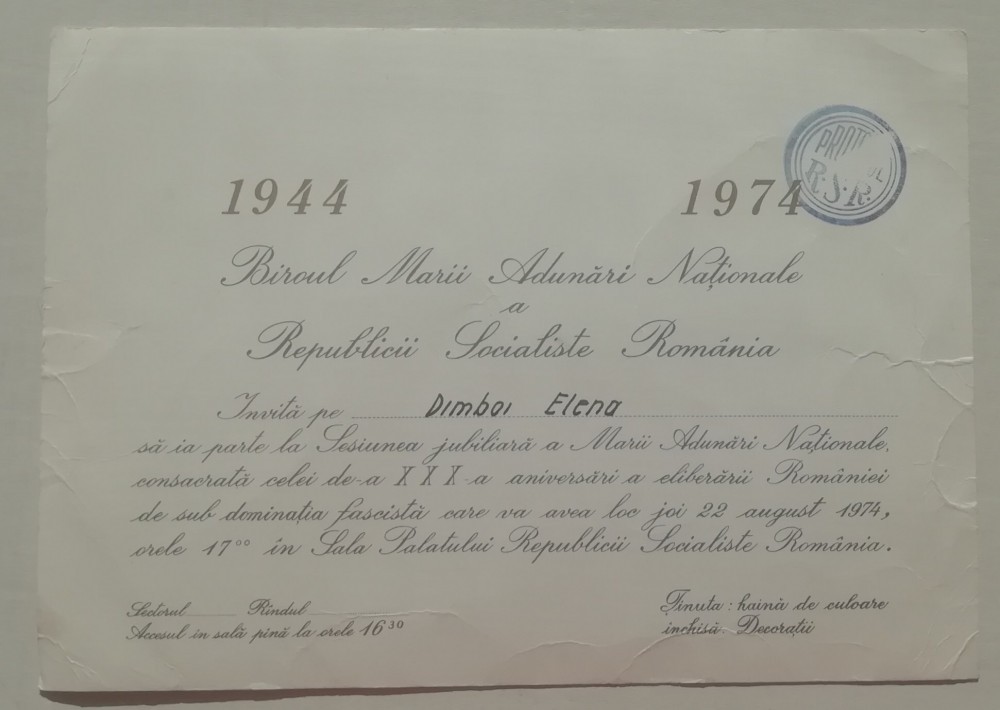 1944 1974
R.S.R.
Biroul Marii Adunări Naționale
a
Republicii Socialiste România
Invită pe Dimboi Elena
să ia parte la Sesiunea jubiliară a Marii Adunări Naționale,
consacrată celei de-a XXX-a aniversări a eliberării României
de sub dominația fascistă care va avea loc joi 22 august 1974,
orele 17⁰⁰ în Sala Palatului Republicii Socialiste România.
Sectorul Rîndul
Accesul în sală pînă la orele 16³⁰
Ținuta: haină de culoare
închisă. Decorații